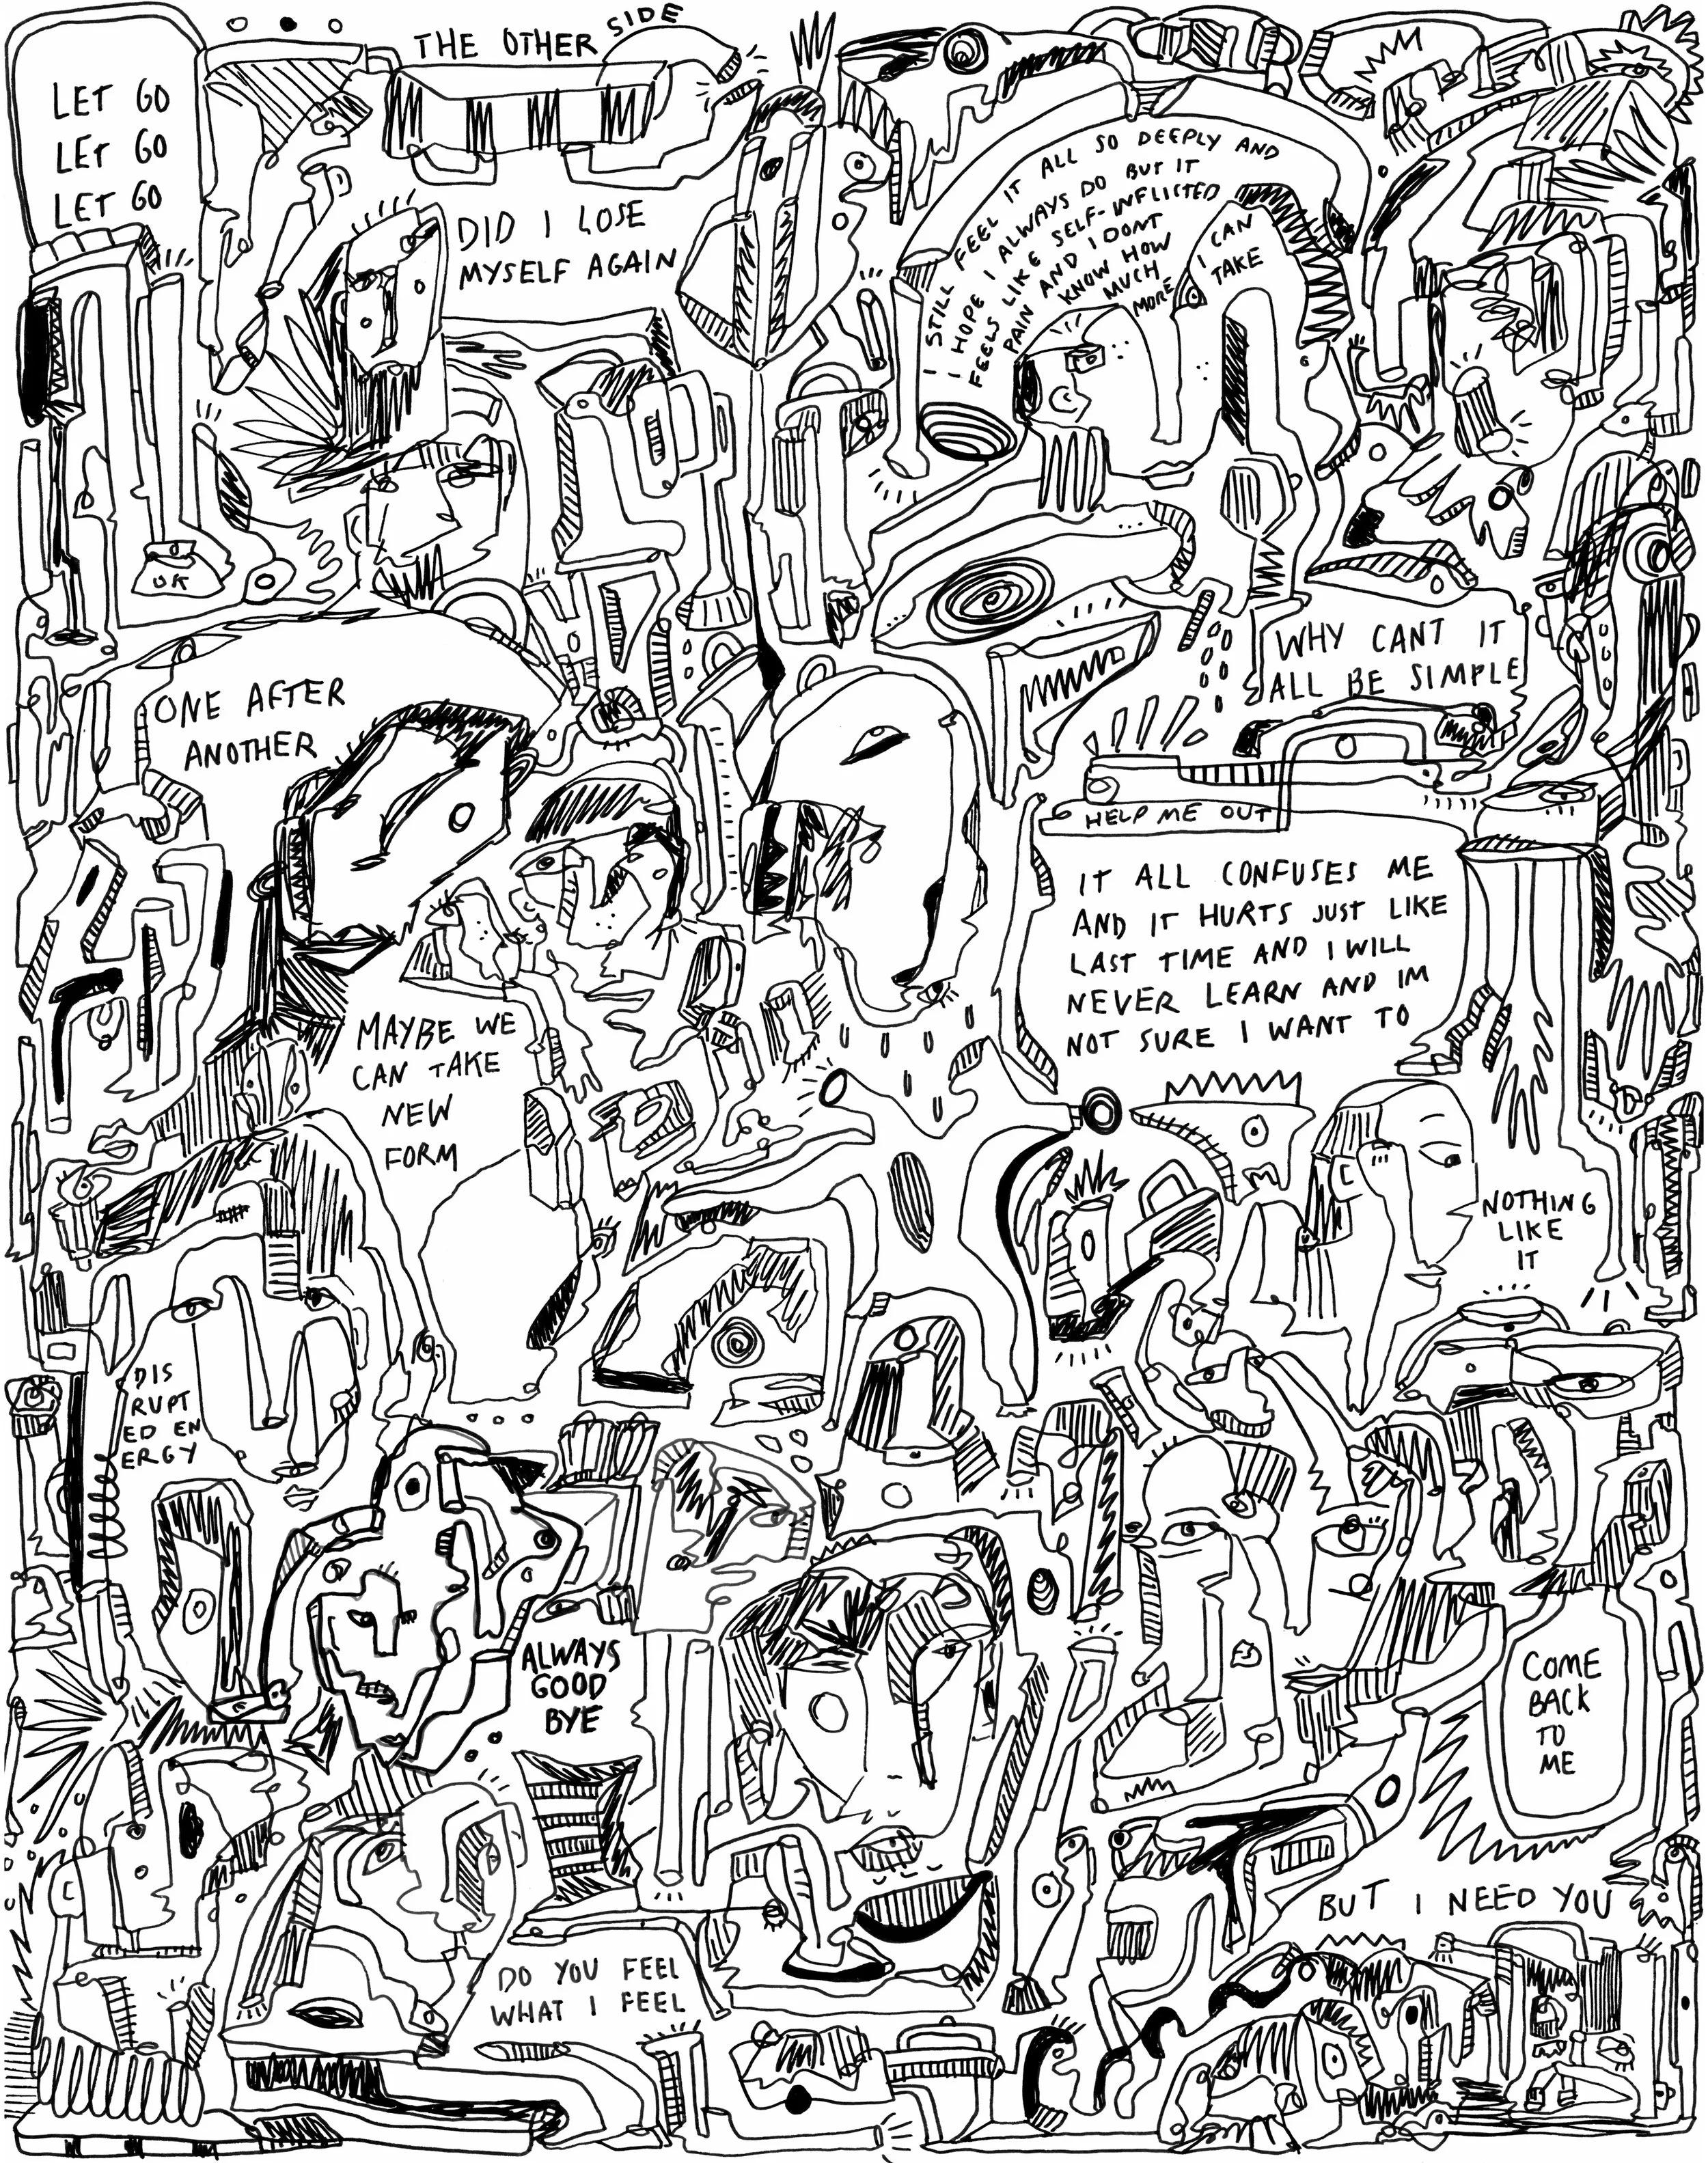 THE OTHER SIDE
LET GO
LET GO
LET GO
DID I LOSE
MYSELF AGAIN
I STILL FEEL IT ALL SO DEEPLY AND
I HOPE I ALWAYS DO BUT IT
FEELS LIKE SELF-INFLICTED
PAIN AND I DONT
KNOW HOW
MUCH
MORE
I CAN
TAKE
OK
WHY CANT IT
ALL BE SIMPLE
ONE AFTER
ANOTHER
HELP ME OUT
IT ALL CONFUSES ME
AND IT HURTS JUST LIKE
LAST TIME AND I WILL
NEVER LEARN AND IM
NOT SURE I WANT TO
MAYBE WE
CAN TAKE
NEW
FORM
NOTHING
LIKE
IT
DIS
RUPT
ED EN
ERGY
ALWAYS
GOOD
BYE
COME
BACK
TO
ME
BUT I NEED YOU
DO YOU FEEL
WHAT I FEEL